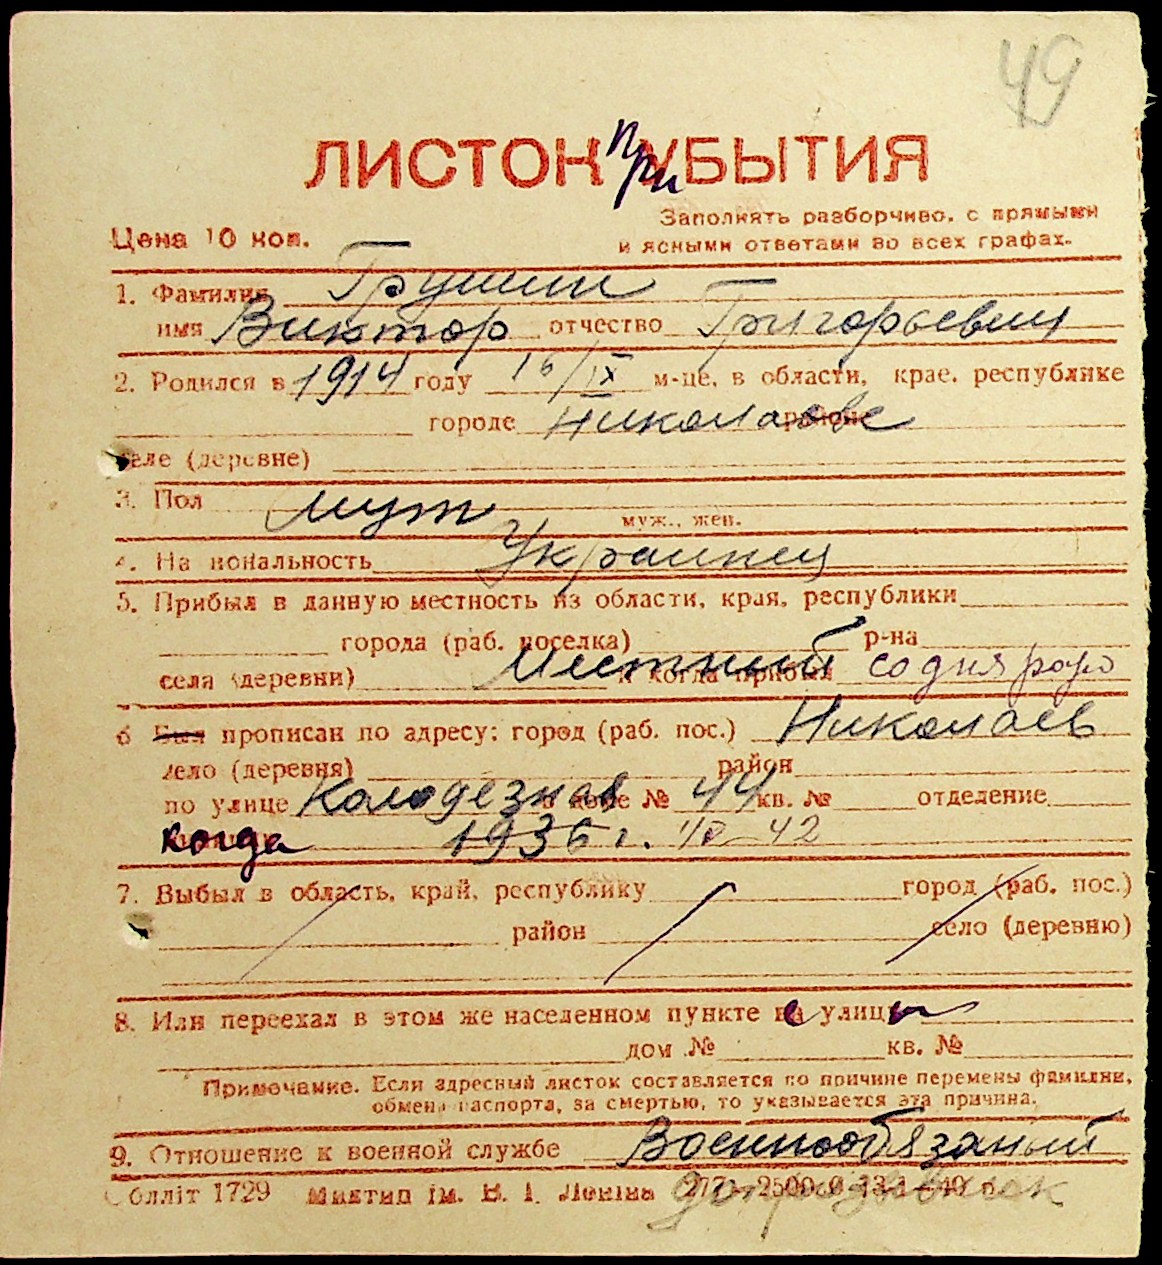 49
ЛИСТОК при УБЫТИЯ
Заполнять разборчиво, с прямыми
Цена 10 коп. и ясными ответами во всех графах.
1. Фамилия Грушин
имя Виктор отчество Григорьевич
2. Родился в 1914 году 16/IX м-це, в области, крае, республике
городе Николаеве районе
селе (деревне)
3. Пол муж
муж., жен.
4. Национальность Украинец
5. Прибыл в данную местность из области, края, республики
города (раб. поселка) р-на
села (деревни) Местный и когда прибыл со дня рож
6 Был прописан по адресу: город (раб. пос.) Николаев
село (деревня) район
по улице Колодезная в доме № 44 кв. № отделение
когда 1936 г. 42
7. Выбыл в область, край, республику город (раб. пос.)
район село (деревню)
8. Или переехал в этом же населенном пункте с улицы
дом № кв. №
Примечание. Если адресный листок составляется по причине перемены фамилии,
обмена паспорта, за смертью, то указывается эта причина.
9. Отношение к военной службе Военнообязаный
Обліт 1729 ім. В. І. Леніна допризывник